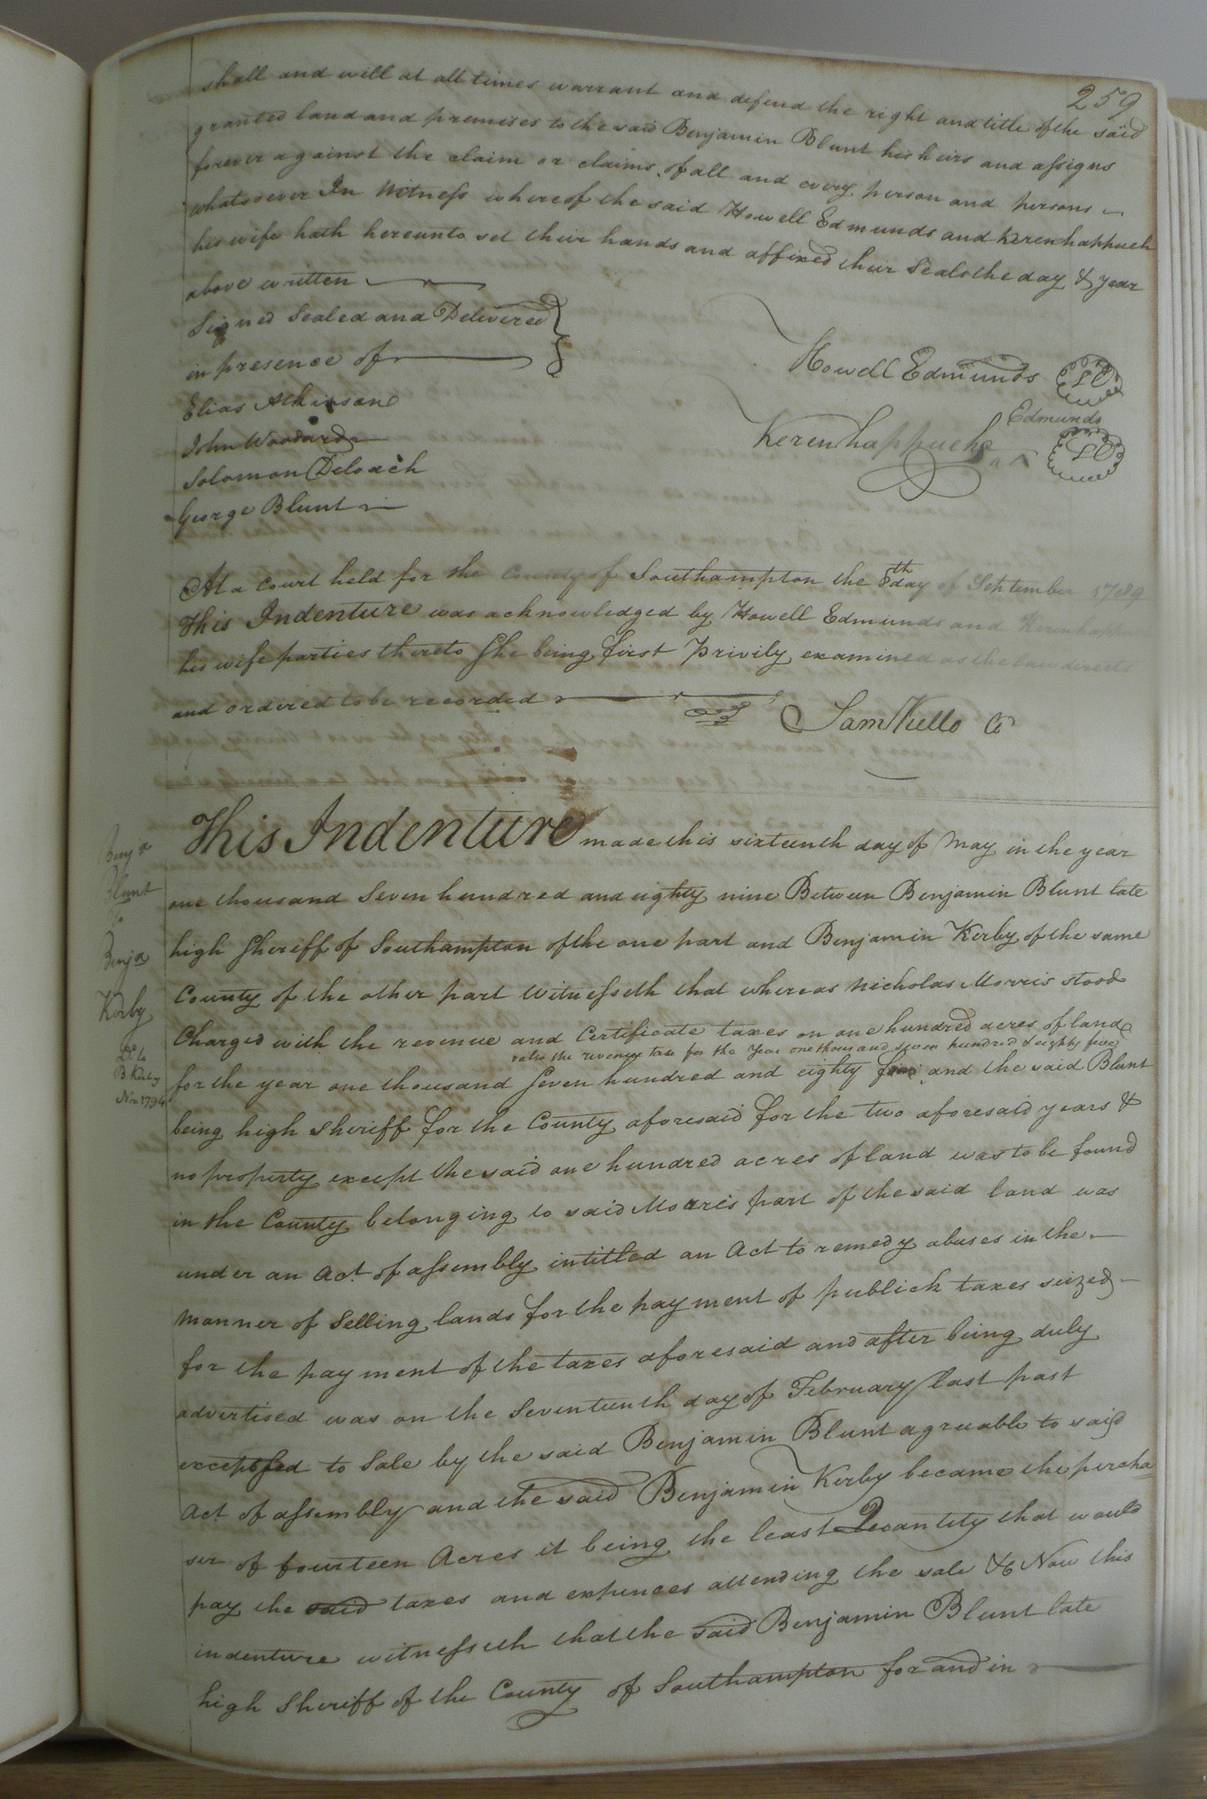 259
shall and will at all times warrant and defend the right and title of the said
granted land and premises to the said Benjamin Blunt his heirs and assigns
forever against the claim or claims of all and every person and persons
whatsoever In Witness whereof the said Howell Edmunds and Kerenhappuch
his wife hath hereunto set their hands and affixed their Seals the day & year
above written
Signed Sealed and Delivered
in presence of
Elias Atkinson
John Woodard
Solomon Deloach
George Blunt
Howell Edmunds LS
Edmunds
Kerenhappuch ^ LS
At a Court held for the County of Southampton the 8th day of September 1789
This Indenture was acknowledged by Howell Edmunds and Kerenhap
his wife parties thereto She being first Privily examined as the law directs
and ordered to be recorded
Sam Kello C
This Indenture made this sixteenth day of May in the year
one thousand Seven hundred and eighty nine Between Benjamin Blunt late
high Sheriff of Southampton of the one part and Benjamin Kerby of the same
County of the other part Witnesseth that whereas Nicholas Morris stood
Charged with the revenue and Certificate taxes on one hundred acres of land
the revenue tax for the Year one thousand seven hundred & eighty five
for the year one thousand Seven hundred and eighty four and the said Blunt
being high Sheriff for the County aforesaid for the two aforesaid years &
no property except the said one hundred acres of land was to be found
in the County belonging to said Morris part of the said land was
under an Act of assembly intitled an Act to remedy abuses in the
manner of Selling lands for the payment of publick taxes seized
for the payment of the taxes aforesaid and after being duly
advertised was on the Seventeenth day of February last past
to Sale by the said Benjamin Blunt agreeable to said
Act of assembly and the said Benjamin Kerby became the percha
ser of fourteen Acres it being the least Quantity that would
pay the said taxes and expences attending the sale &c Now this
indenture witnesseth that the said Benjamin Blunt late
high Sheriff of the County of Southampton for and in
Benja
Blunt
to
Benja
Kirby
B. Kirby
Nov 1794